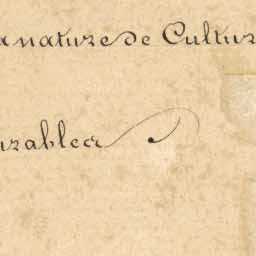 a nature de Cultur
urables